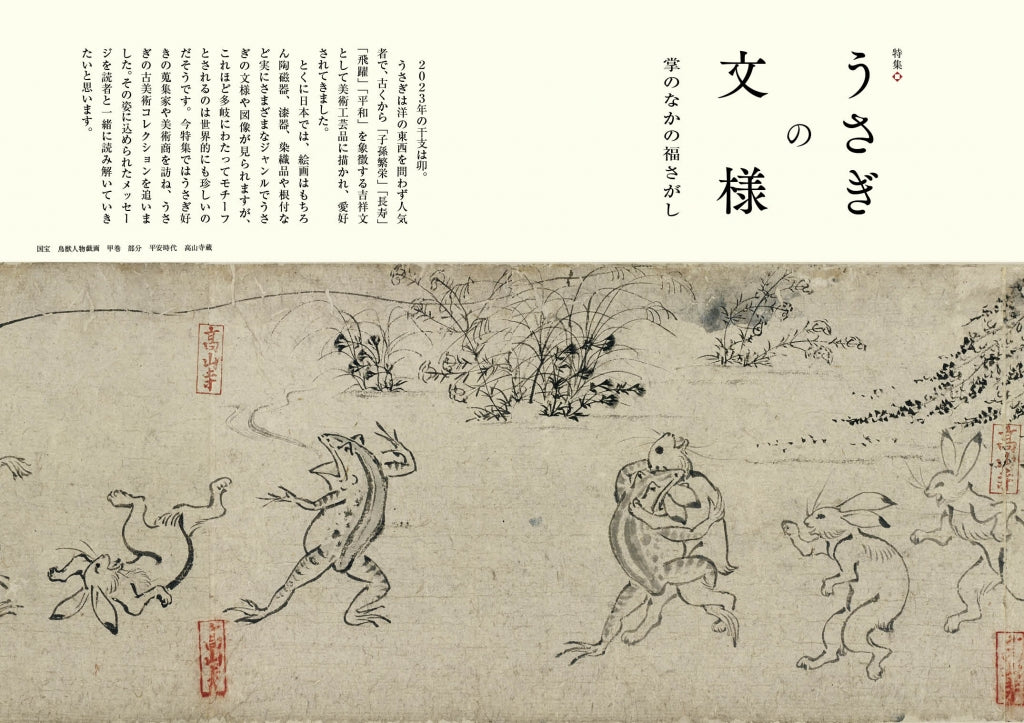 特集
うさぎ
の
文様
掌のなかの福さがし
2023年の干支は卯。
うさぎは洋の東西を問わず人気
者で、古くから「子孫繁栄」「長寿」
「飛躍」「平和」を象徴する吉祥文
として美術工芸品に描かれ、愛好
されてきました。
とくに日本では、絵画はもちろ
ん陶磁器、漆器、染織品や根付な
ど実にさまざまなジャンルでうさ
ぎの文様や図像が見られますが、
これほど多岐にわたってモチーフ
とされるのは世界的にも珍しいの
だそうです。今特集ではうさぎ好
きの蒐集家や美術商を訪ね、うさ
ぎの古美術コレクションを追いま
した。その姿に込められたメッセー
ジを読者と一緒に読み解いていき
たいと思います。
国宝 鳥獣人物戯画 甲巻 部分 平安時代 高山寺蔵
高山寺
高山寺
高山寺